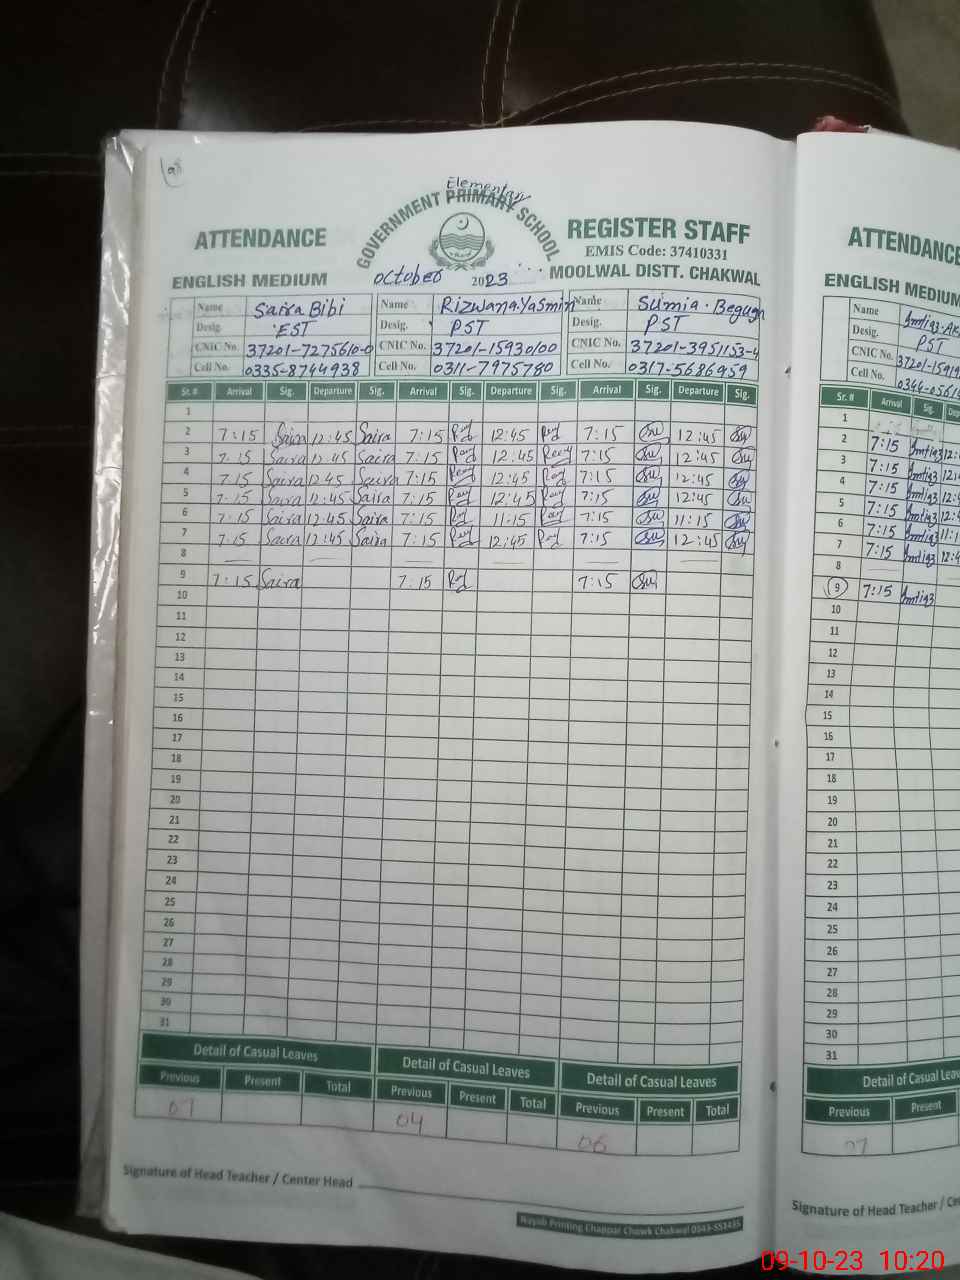 Elementary
GOVERNMENT PRIMARY SCHOOL
ATTENDANCE REGISTER STAFF
EMIS Code: 37410331
ENGLISH MEDIUM October 2023 MOOLWAL DISTT. CHAKWAL
Name Saira Bibi Name Rizwana Yasmin Name Sumia Begugn
Desig. EST Desig. PST Desig. PST
CNIC No. 37201-7275610-0 CNIC No. 37201-15930100 CNIC No. 37201-3951153-4
Cell No. 0335-8744938 Cell No. 0311-7975780 Cell No. 0317-5686959
Sr. # Arrival Sig. Departure Sig. Arrival Sig. Departure Sig. Arrival Sig. Departure Sig.
1
2 7:15 Saira 12:45 Saira 7:15 12:45 7:15 Su 12:45 Su
3 7:15 Saira 12:45 Saira 7:15 12:45 7:15 Su 12:45 Su
4 7:15 Saira 12:45 Saira 7:15 12:45 7:15 Su 12:45 Su
5 7:15 Saira 12:45 Saira 7:15 12:45 7:15 Su 12:45 Su
6 7:15 Saira 12:45 Saira 7:15 11:15 7:15 Su 11:15 Su
7 7:15 Saira 12:45 Saira 7:15 12:45 7:15 Su 12:45 Su
8
9 7:15 Saira 7:15 7:15 Su
10
11
12
13
14
15
16
17
18
19
20
21
22
23
24
25
26
27
28
29
30
31
Detail of Casual Leaves Detail of Casual Leaves Detail of Casual Leaves
Previous Present Total Previous Present Total Previous Present Total
07 04 06
Signature of Head Teacher / Center Head
Nayab Printing Chappar Chowk Chakwal 0543-551435
ATTENDANCE
ENGLISH MEDIUM
Name
Desig. PST
CNIC No. 37201-1591
Cell No. 0346-0561
Sr. # Arrival Sig.
1
2 7:15 Imtiqz
3 7:15 Imtiqz
4 7:15 Imtiqz
5 7:15 Imtiqz
6 7:15 Imtiqz
7 7:15 Imtiqz
8
9 7:15 Imtiqz
10
11
12
13
14
15
16
17
18
19
20
21
22
23
24
25
26
27
28
29
30
31
Detail of Casual
Previous Present
07
Signature of Head Teacher /
09-10-23 10:20